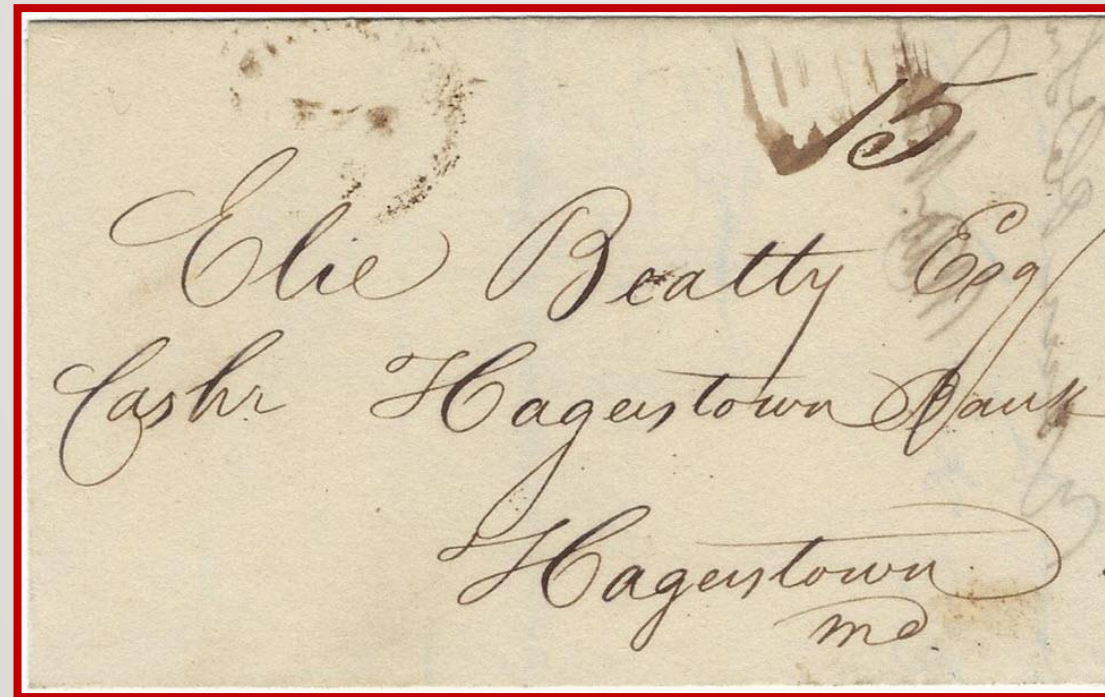 15
Elie Beatty Esq
Cashr Hagerstown Bank
Hagerstown
md.